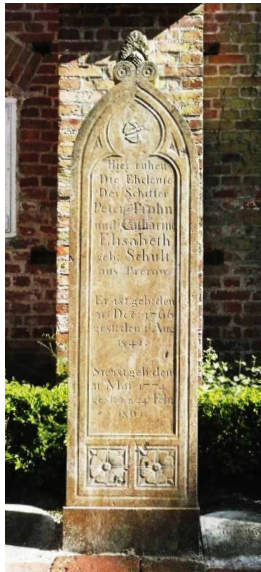 Hier ruhen
Die Eheleute
Der Schiffer
Peter Prohn
und Catharine
Elisabeth
geb: Schult
aus Prerow.
Er ist geb: den
Dec: 1766
gest: den Aug:
184
Sie ist geb: den
Mai 177
gest: d: 24 Febr: